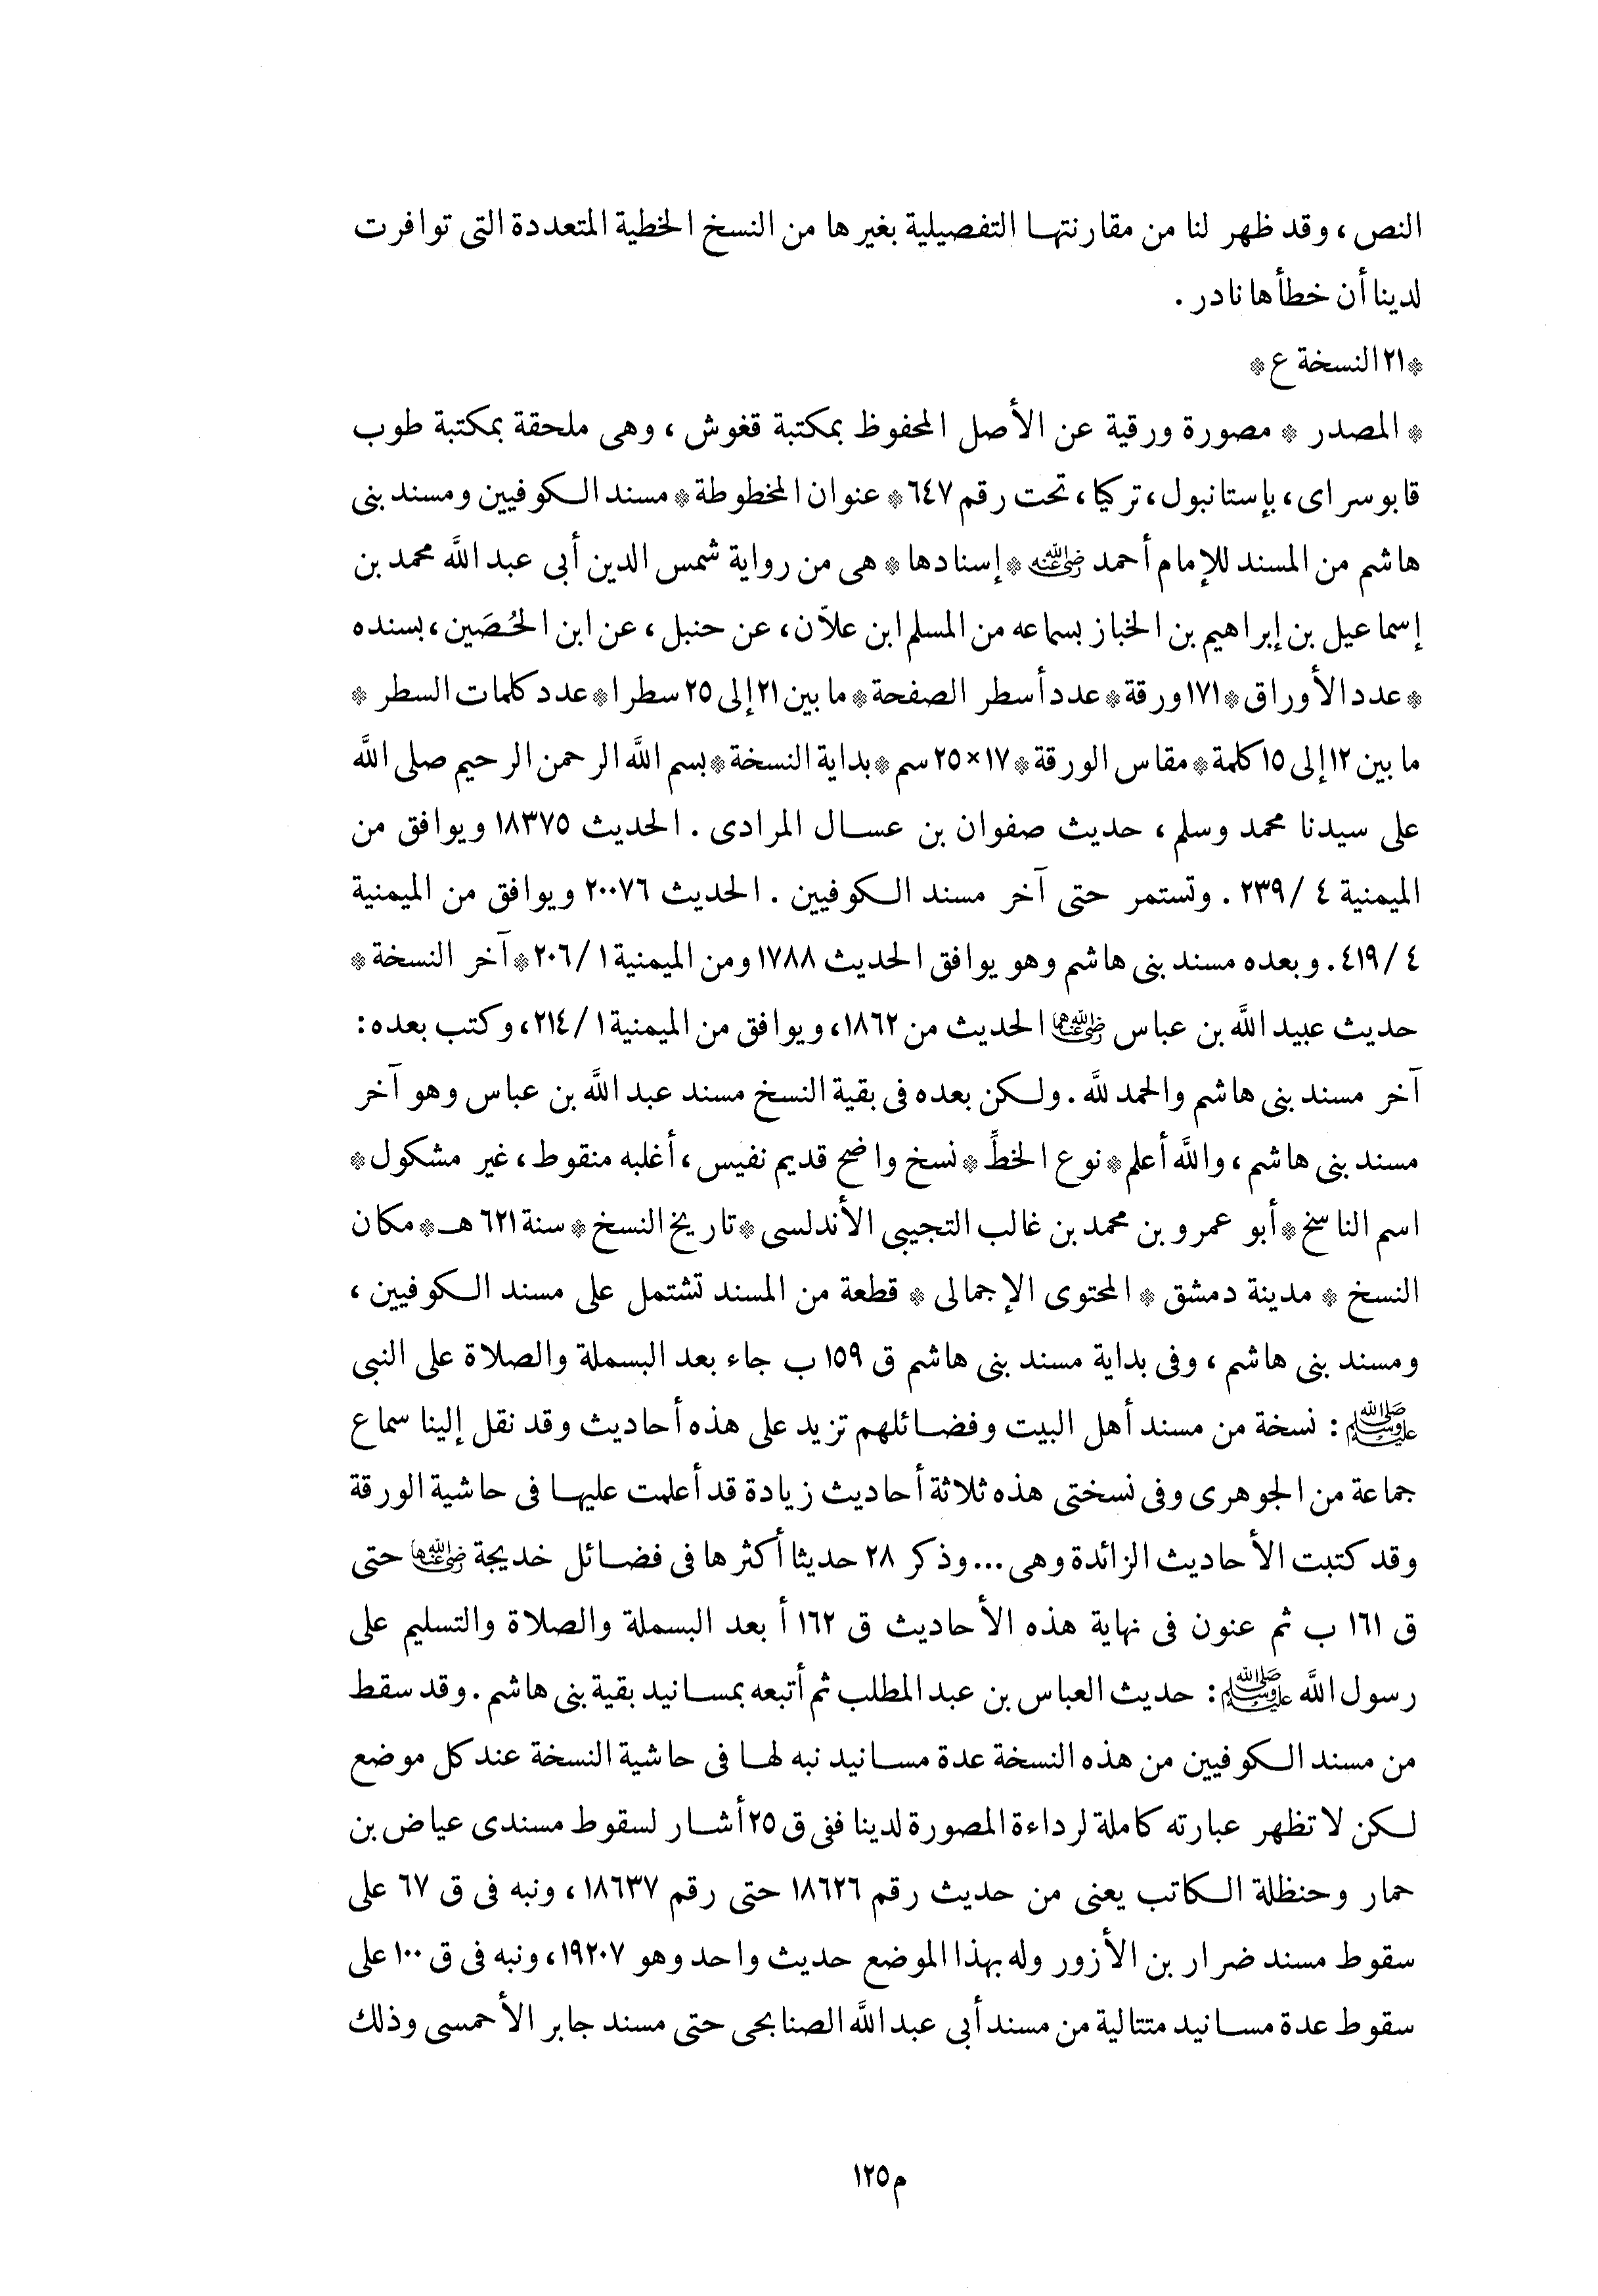 النص، وقد ظهر لنا من مقارنتها التفصيلية بغيرها من النسخ الخطية المتعددة التى توافرت
لدينا أن خطأها نادر.
* ٢١ النسخة ع *
* المصدر * مصورة ورقية عن الأصل المحفوظ بمكتبة قغوش، وهى ملحقة بمكتبة طوب
قابوسراى، بإستانبول، تركيا، تحت رقم ٦٤٧ * عنوان المخطوطة * مسند الكوفيين ومسند بنى
هاشم من المسند للإمام أحمد رضي الله عنه * إسنادها * هى من رواية شمس الدين أبى عبد الله محمد بن
إسماعيل بن إبراهيم بن الخباز بسماعه من المسلم ابن علاّن، عن حنبل، عن ابن الحُصَين، بسنده
* عدد الأوراق * ١٧١ ورقة * عدد أسطر الصفحة * ما بين ٢١ إلى ٢٥ سطرا * عدد كلمات السطر *
ما بين ١٢ إلى ١٥ كلمة * مقاس الورقة * ١٧×٢٥ سم * بداية النسخة * بسم الله الرحمن الرحيم صلى الله
على سيدنا محمد وسلم، حديث صفوان بن عسال المرادى. الحديث ١٨٣٧٥ ويوافق من
الميمنية ٤/ ٢٣٩. وتستمر حتى آخر مسند الكوفيين. الحديث ٢٠٠٧٦ ويوافق من الميمنية
٤/ ٤١٩. وبعده مسند بنى هاشم وهو يوافق الحديث ١٧٨٨ ومن الميمنية ١/ ٢٠٦ * آخر النسخة *
حديث عبيد الله بن عباس رضي الله عنهما الحديث من ١٨٦٢، ويوافق من الميمنية ١/ ٢١٤، وكتب بعده:
آخر مسند بنى هاشم والحمد لله. ولكن بعده فى بقية النسخ مسند عبد الله بن عباس وهو آخر
مسند بنى هاشم، والله أعلم * نوع الخطِّ * نسخ واضح قديم نفيس، أغلبه منقوط، غير مشكول *
اسم الناسخ * أبو عمرو بن محمد بن غالب التجيبى الأندلسى * تاريخ النسخ * سنة ٦٢١ هـ * مكان
النسخ * مدينة دمشق * المحتوى الإجمالى * قطعة من المسند تشتمل على مسند الكوفيين،
ومسند بنى هاشم، وفى بداية مسند بنى هاشم ق ١٥٩ ب جاء بعد البسملة والصلاة على النبى
ﷺ: نسخة من مسند أهل البيت وفضائلهم تزيد على هذه أحاديث وقد نقل إلينا سماع
جماعة من الجوهرى وفى نسختى هذه ثلاثة أحاديث زيادة قد أعلمت عليها فى حاشية الورقة
وقد كتبت الأحاديث الزائدة وهى ... وذكر ٢٨ حديثا أكثرها فى فضائل خديجة رضي الله عنها حتى
ق ١٦١ ب ثم عنون فى نهاية هذه الأحاديث ق ١٦٢ أ بعد البسملة والصلاة والتسليم على
رسول الله ﷺ: حديث العباس بن عبد المطلب ثم أتبعه بمسانيد بقية بنى هاشم. وقد سقط
من مسند الكوفيين من هذه النسخة عدة مسانيد نبه لها فى حاشية النسخة عند كل موضع
لكن لا تظهر عبارته كاملة لرداءة المصورة لدينا ففى ق ٢٥ أشار لسقوط مسندى عياض بن
حمار وحنظلة الكاتب يعنى من حديث رقم ١٨٦٢٦ حتى رقم ١٨٦٣٧، ونبه فى ق ٦٧ على
سقوط مسند ضرار بن الأزور وله بهذا الموضع حديث واحد وهو ١٩٢٠٧، ونبه فى ق ١٠٠ على
سقوط عدة مسانيد متتالية من مسند أبى عبد الله الصنابحى حتى مسند جابر الأحمسى وذلك
م١٢٥